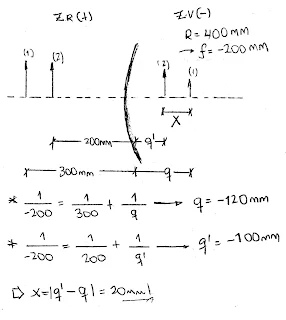 ZR(+)
ZV(-)
R = 400mm
→ f = -200mm
(1)
(2)
(2)
(1)
X
200mm
q'
300mm
q
* 1/-200 = 1/300 + 1/q → q = -120mm
* 1/-200 = 1/200 + 1/q' → q' = -100mm
⇨ X = |q' - q| = 20mm!